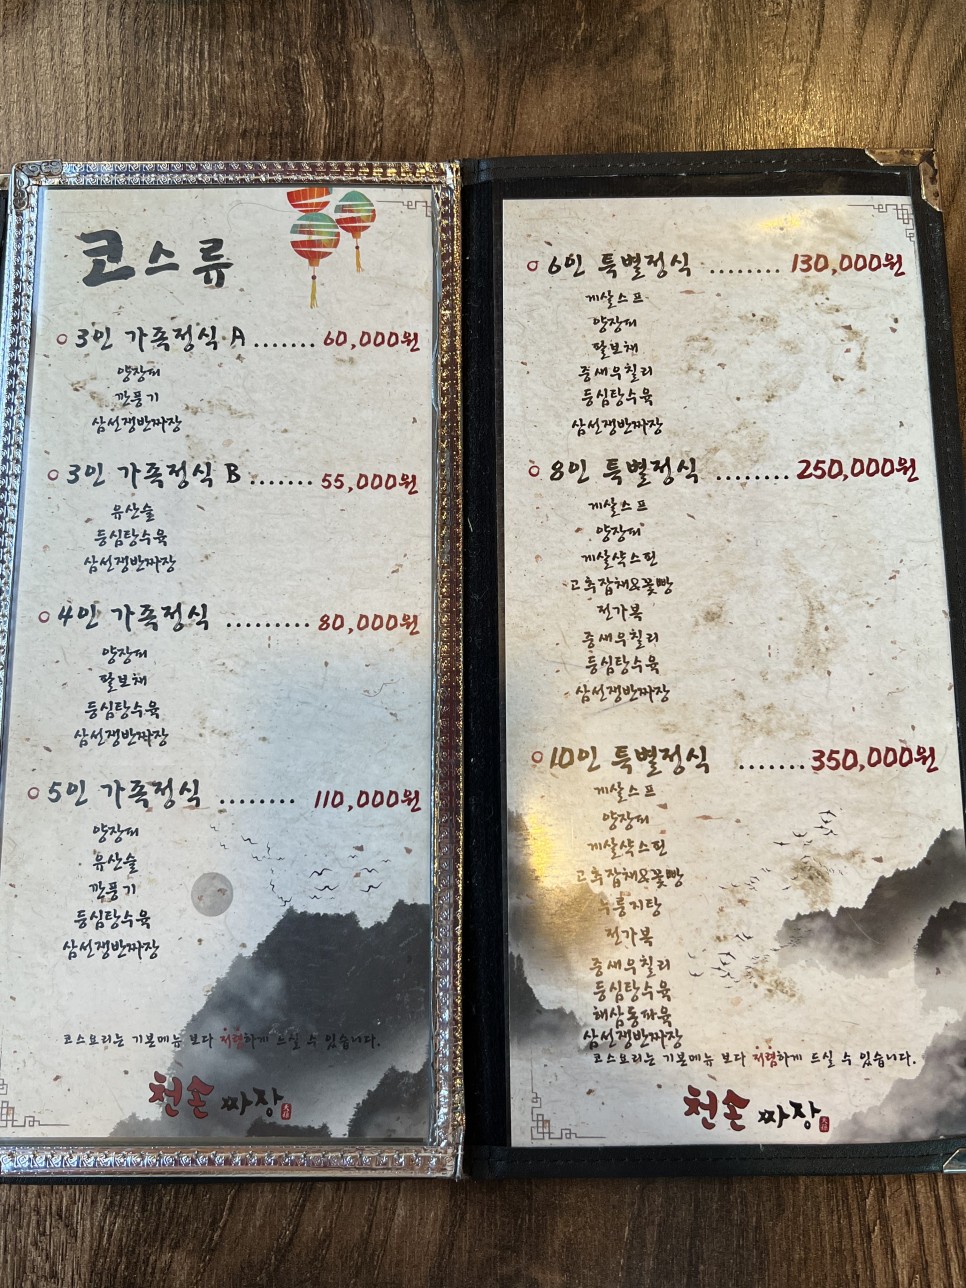 코스류
3인 가족정식 A ....... 60,000원
양장피
깐풍기
삼선쟁반짜장
3인 가족정식 B ....... 55,000원
유산슬
등심탕수육
삼선쟁반짜장
4인 가족정식 ......... 80,000원
양장피
팔보채
등심탕수육
삼선쟁반짜장
5인 가족정식 ........ 110,000원
양장피
유산슬
깐풍기
등심탕수육
삼선쟁반짜장
코스요리는 기본메뉴 보다 저렴하게 드실 수 있습니다.
천손 짜장
6인 특별정식 ........ 130,000원
게살스프
양장피
팔보채
중새우칠리
등심탕수육
삼선쟁반짜장
8인 특별정식 ........ 250,000원
게살스프
양장피
게살샥스핀
고추잡채&꽃빵
전가복
중새우칠리
등심탕수육
삼선쟁반짜장
10인 특별정식 ....... 350,000원
게살스프
양장피
게살샥스핀
고추잡채&꽃빵
누룽지탕
전가복
중새우칠리
등심탕수육
해삼동파육
삼선쟁반짜장
코스요리는 기본메뉴 보다 저렴하게 드실 수 있습니다.
천손 짜장